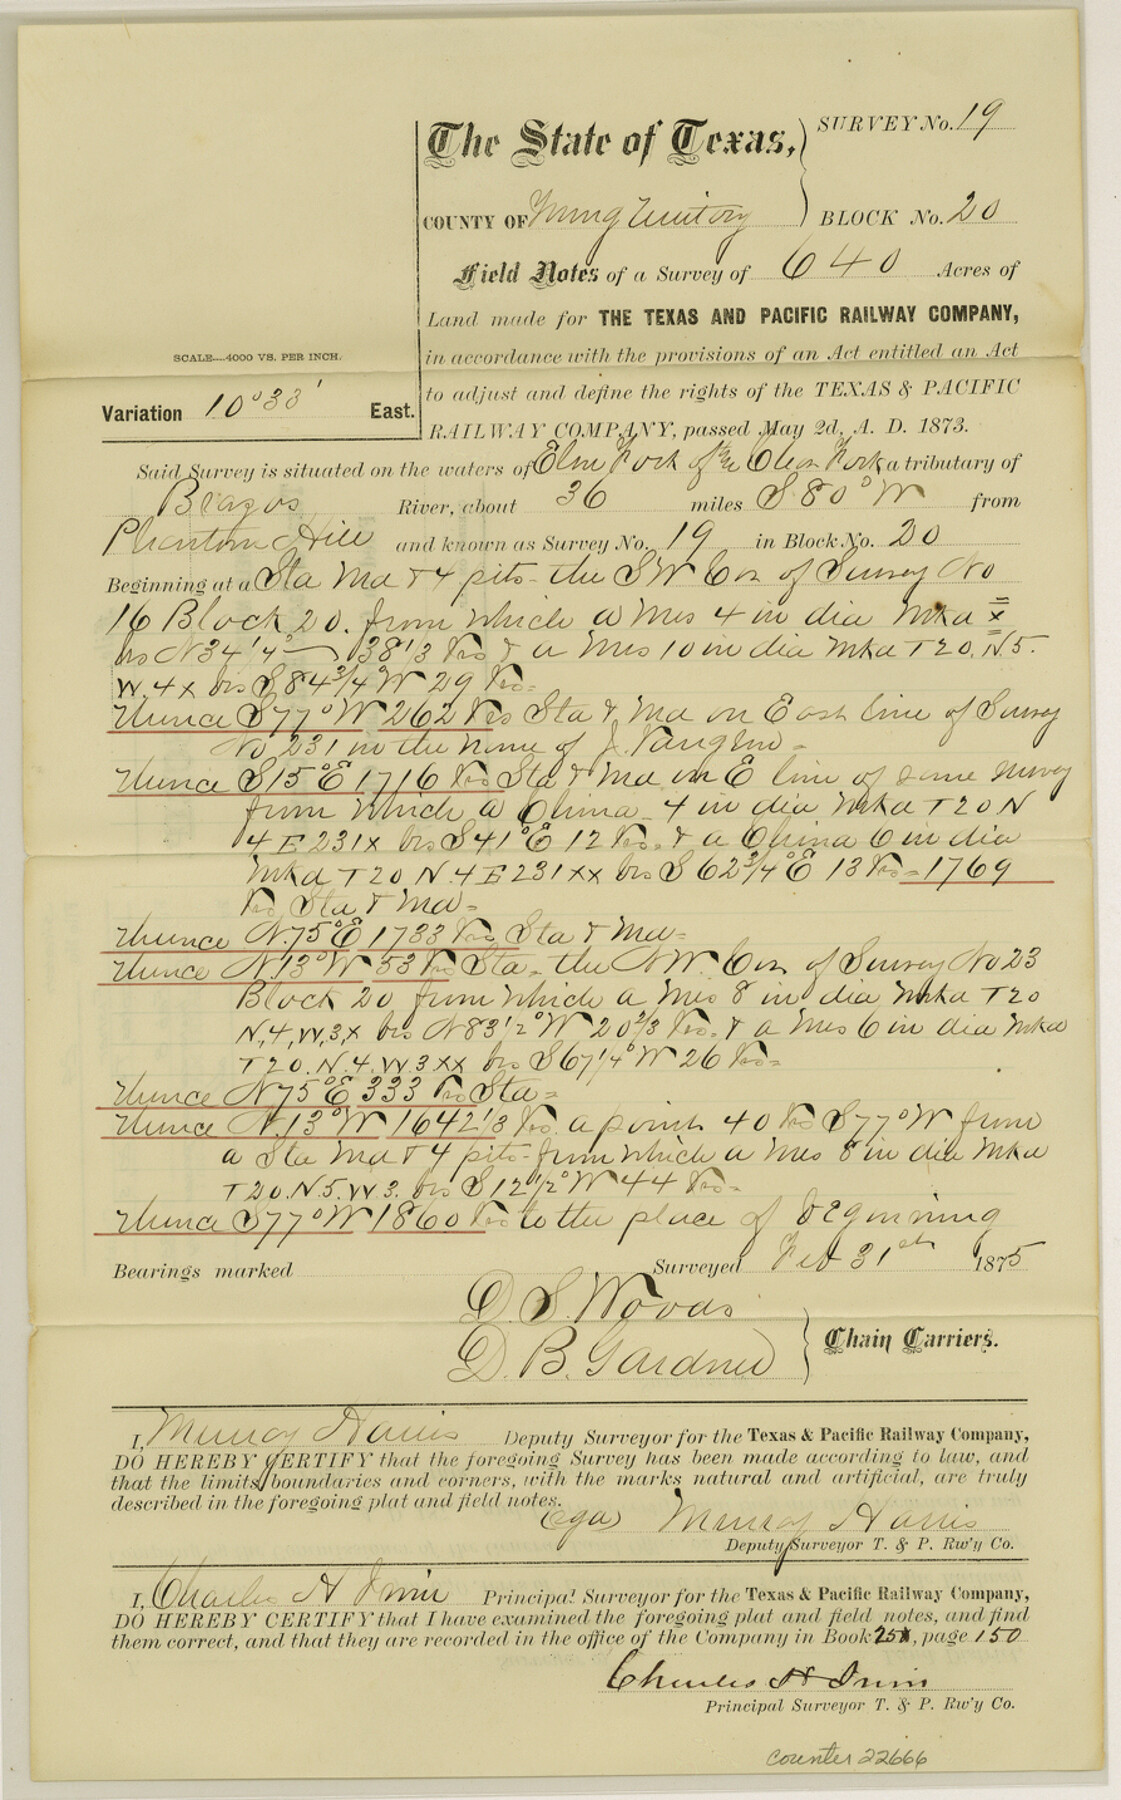 The State of Texas,
SURVEY No. 19
COUNTY OF Young Territory
BLOCK No. 20
Field Notes of a Survey of 640 Acres of
Land made for THE TEXAS AND PACIFIC RAILWAY COMPANY,
in accordance with the provisions of an Act entitled an Act
to adjust and define the rights of the TEXAS & PACIFIC
RAILWAY COMPANY, passed May 2d, A. D. 1873.
SCALE—4000 VS. PER INCH.
Variation 10°33' East.
Said Survey is situated on the waters of Elm Fork of the Clear Fork a tributary of
Brazos River, about 36 miles S 80° W from
Phantom Hill and known as Survey No. 19 in Block No. 20
Beginning at a Sta Md & 4 pits - the SW Cor of Survey No
16 Block 20. from which a Mes 4 in dia Mkd x
brs N34 1/4° 38 1/3 Vrs & a Mes 10 in dia Mkd T20.N.5.
W.4x brs S84 3/4°W 29 Vrs=
Thence S77°W 262 Vrs Sta & Md on East line of Survey
No 231 in the name of J.
Thence S15°E 1716 Vrs Sta & Md on E line of same survey
from which a China 4 in dia Mkd T20N
4E231x brs S41°E 12 Vrs. & a China 6 in dia
Mkd T20N.4E231xx brs S62 3/4°E 13 Vrs=1769
Vrs Sta & Md=
Thence N.75°E 1733 Vrs Sta & Md=
Thence N.13°W 53 Vrs Sta= the NW. Cor of Survey No 23
Block 20 from which a Mes 8 in dia Mkd T20
N,4,W,3,x brs N83 1/2°W 20 2/3 Vrs. & a Mes 6 in dia Mkd
T20.N.4.W.3xx brs S67 1/4°W 26 Vrs=
Thence N75°E 333 Vrs Sta=
Thence N.13°W 1642 1/3 Vrs. a point 40 Vrs S77°W from
a Sta Md & 4 pits - from which a Mes 8 in dia Mkd
T20.N.5.W3. brs S12 1/2°W 44 Vrs=
Thence S77°W 1860 Vrs to the place of beginning
Bearings marked Surveyed Feb 31st 1875
D. S. Woods
D. B. Gardner
Chain Carriers.
I, Murray Harris Deputy Surveyor for the Texas & Pacific Railway Company,
DO HEREBY CERTIFY that the foregoing Survey has been made according to law, and
that the limits, boundaries and corners, with the marks natural and artificial, are truly
described in the foregoing plat and field notes.
Murray Harris
Deputy Surveyor T. & P. Rw'y Co.
I, Charles H Irvin Principal Surveyor for the Texas & Pacific Railway Company,
DO HEREBY CERTIFY that I have examined the foregoing plat and field notes, and find
them correct, and that they are recorded in the office of the Company in Book 25, page 150
Charles H Irvin
Principal Surveyor T. & P. Rw'y Co.
counter 22666